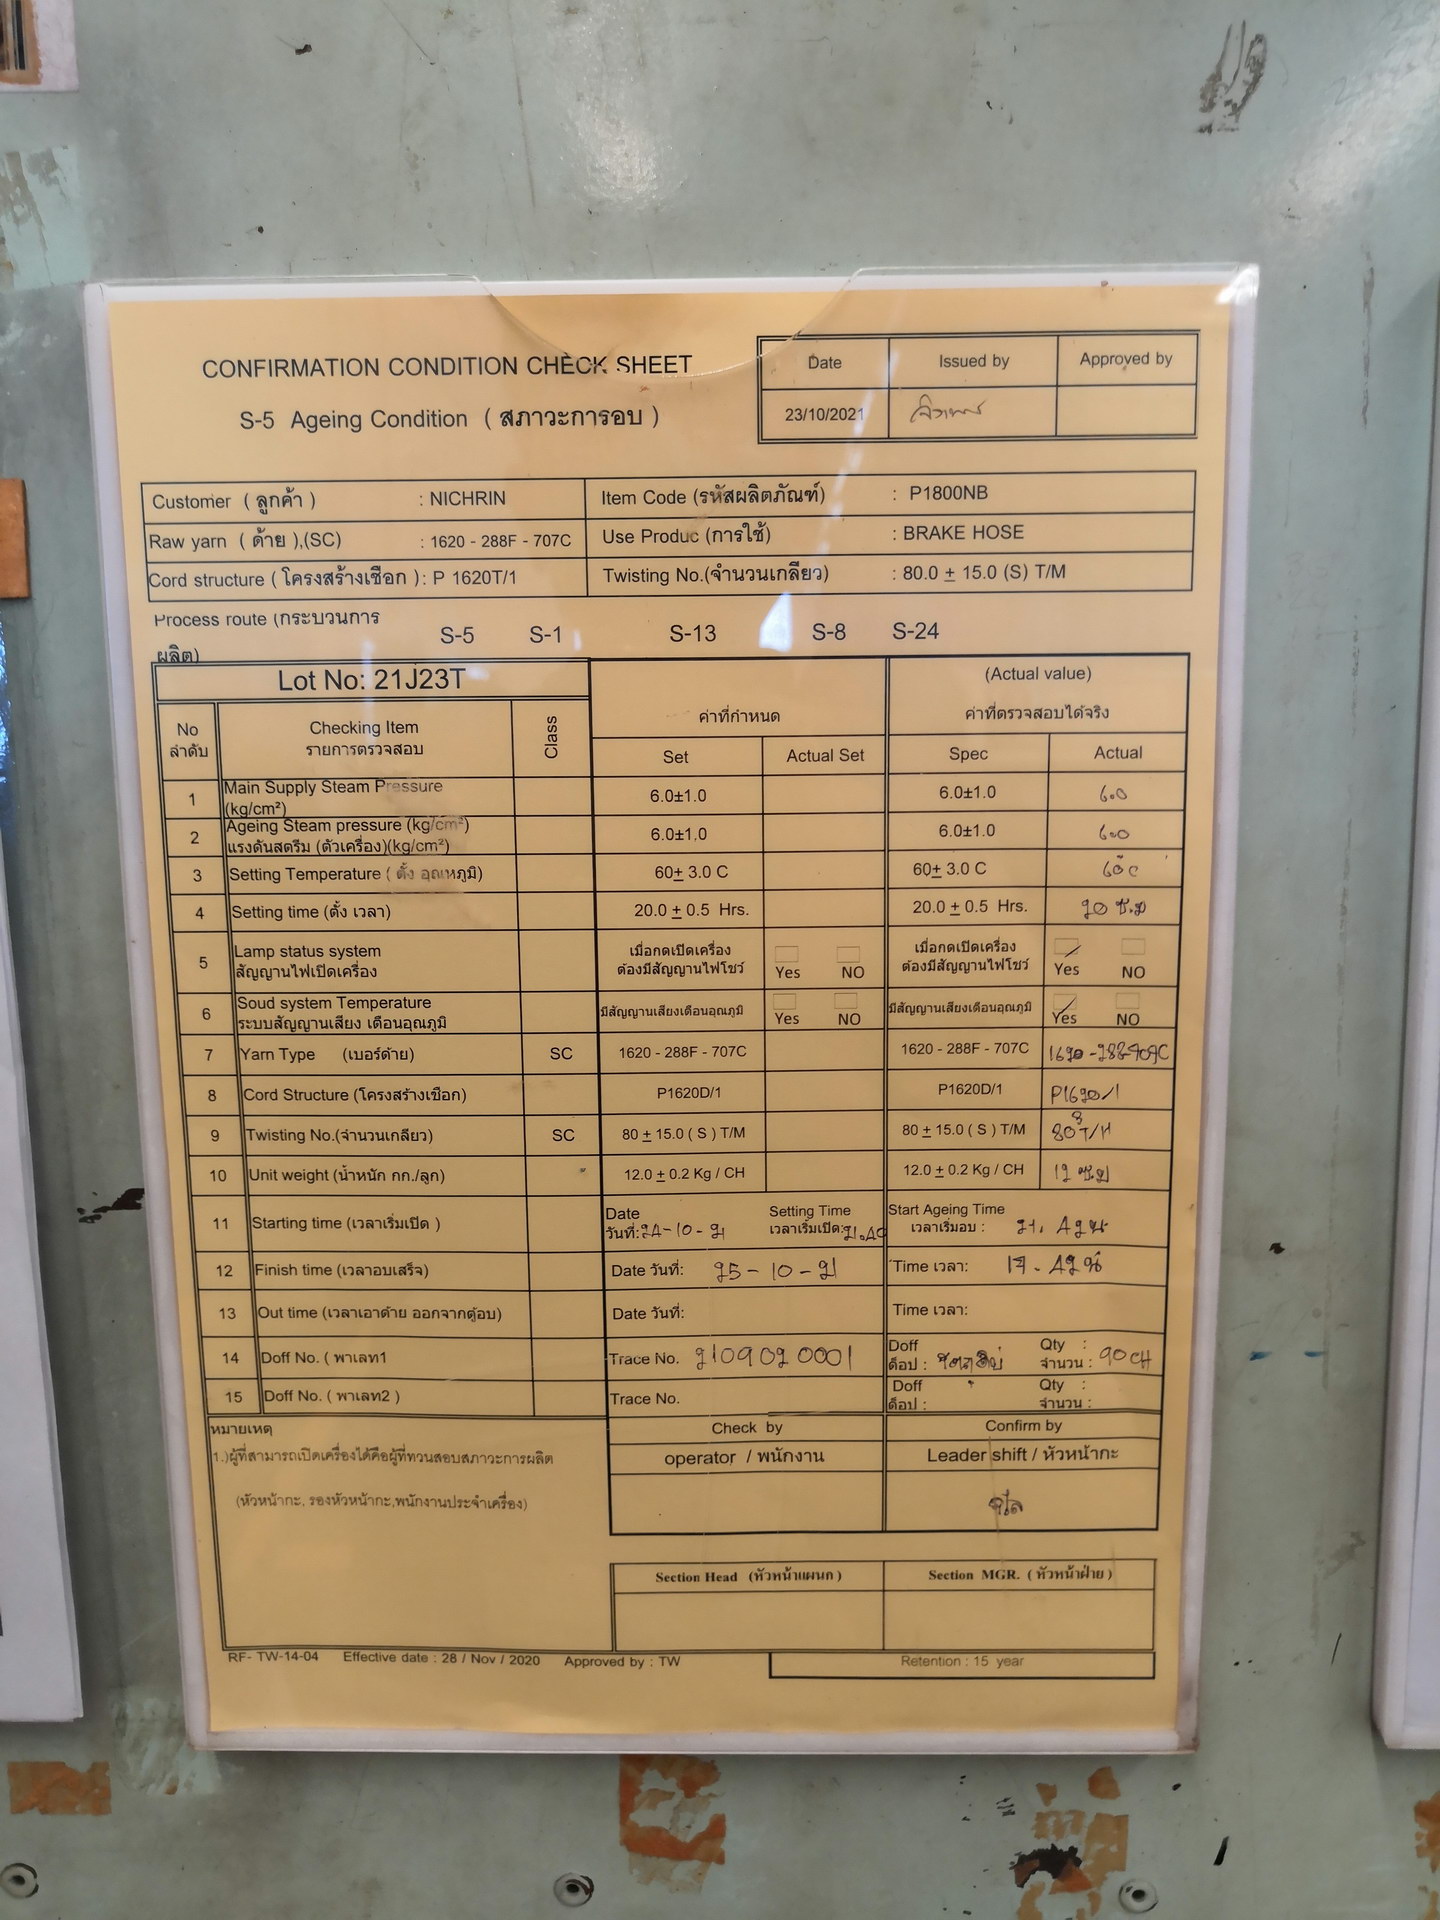 CONFIRMATION CONDITION CHECK SHEET
S-5 Ageing Condition ( สภาวะการอบ )
Date Issued by Approved by
23/10/2021
Customer ( ลูกค้า ) : NICHRIN Item Code (รหัสผลิตภัณฑ์) : P1800NB
Raw yarn ( ด้าย ),(SC) : 1620 - 288F - 707C Use Produc (การใช้) : BRAKE HOSE
Cord structure ( โครงสร้างเชือก ): P 1620T/1 Twisting No.(จำนวนเกลียว) : 80.0 ± 15.0 (S) T/M
Process route (กระบวนการ
ผลิต) S-5 S-1 S-13 S-8 S-24
Lot No: 21J23T
(Actual value)
ค่าที่กำหนด ค่าที่ตรวจสอบได้จริง
No
ลำดับ
Checking Item
รายการตรวจสอบ
Class
Set Actual Set Spec Actual
1 Main Supply Steam Pressure
(kg/cm²) 6.0±1.0 6.0±1.0 6.0
2 Ageing Steam pressure (kg/cm²)
แรงดันสตรีม (ตัวเครื่อง)(kg/cm²) 6.0±1.0 6.0±1.0 6.0
3 Setting Temperature ( ตั้ง อุณหภูมิ) 60± 3.0 C 60± 3.0 C 60°c
4 Setting time (ตั้ง เวลา) 20.0 ± 0.5 Hrs. 20.0 ± 0.5 Hrs. 20 ช.ม
5 Lamp status system เมื่อกดเปิดเครื่อง เมื่อกดเปิดเครื่อง
สัญญานไฟเปิดเครื่อง ต้องมีสัญญานไฟโชว์ Yes NO ต้องมีสัญญานไฟโชว์ Yes NO
6 Soud system Temperature
ระบบสัญญานเสียง เตือนอุณภูมิ มีสัญญานเสียงเตือนอุณภูมิ Yes NO มีสัญญานเสียงเตือนอุณภูมิ Yes NO
7 Yarn Type (เบอร์ด้าย) SC 1620 - 288F - 707C 1620 - 288F - 707C 1620-288F-707C
8 Cord Structure (โครงสร้างเชือก) P1620D/1 P1620D/1 P1620/1
9 Twisting No.(จำนวนเกลียว) SC 80 ± 15.0 ( S ) T/M 80 ± 15.0 ( S ) T/M 80 T/M
10 Unit weight (น้ำหนัก กก./ลูก) 12.0 ± 0.2 Kg / CH 12.0 ± 0.2 Kg / CH 12
11 Starting time (เวลาเริ่มเปิด )
Date
วันที่: 24-10-21
Setting Time
เวลาเริ่มเปิด: 21.40
Start Ageing Time
เวลาเริ่มอบ : 21.42 น
12 Finish time (เวลาอบเสร็จ) Date วันที่: 25-10-21 Time เวลา: 17.42 น
13 Out time (เวลาเอาด้าย ออกจากตู้อบ) Date วันที่: Time เวลา:
14 Doff No. ( พาเลท1 Trace No. 2109020001
Doff
ด็อป :
Qty :
จำนวน : 90CH
15 Doff No. ( พาเลท2 ) Trace No.
Doff
ด็อป :
Qty :
จำนวน :
หมายเหตุ
1.)ผู้ที่สามารถเปิดเครื่องได้คือผู้ที่ทวนสอบสภาวะการผลิต
(หัวหน้ากะ, รองหัวหน้ากะ,พนักงานประจำเครื่อง)
Check by Confirm by
operator / พนักงาน Leader shift / หัวหน้ากะ
Section Head (หัวหน้าแผนก) Section MGR. (หัวหน้าฝ่าย)
RF- TW-14-04 Effective date : 28 / Nov / 2020 Approved by : TW Retention : 15 year